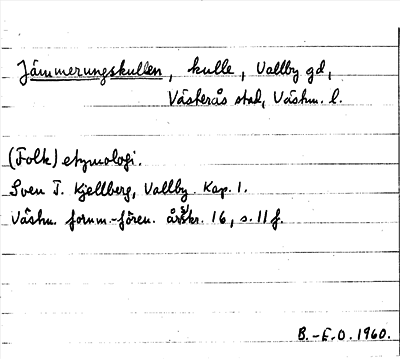 Jämmerungskullen, kulle, Vallby gd,
Västerås stad, Västm. l.
(Folk) etymologi.
Sven T. Kjellberg, Vallby. Kap. 1.
Västm. fornm.-fören. årsskr. 16, s. 11 f.
B.-E.O. 1960.